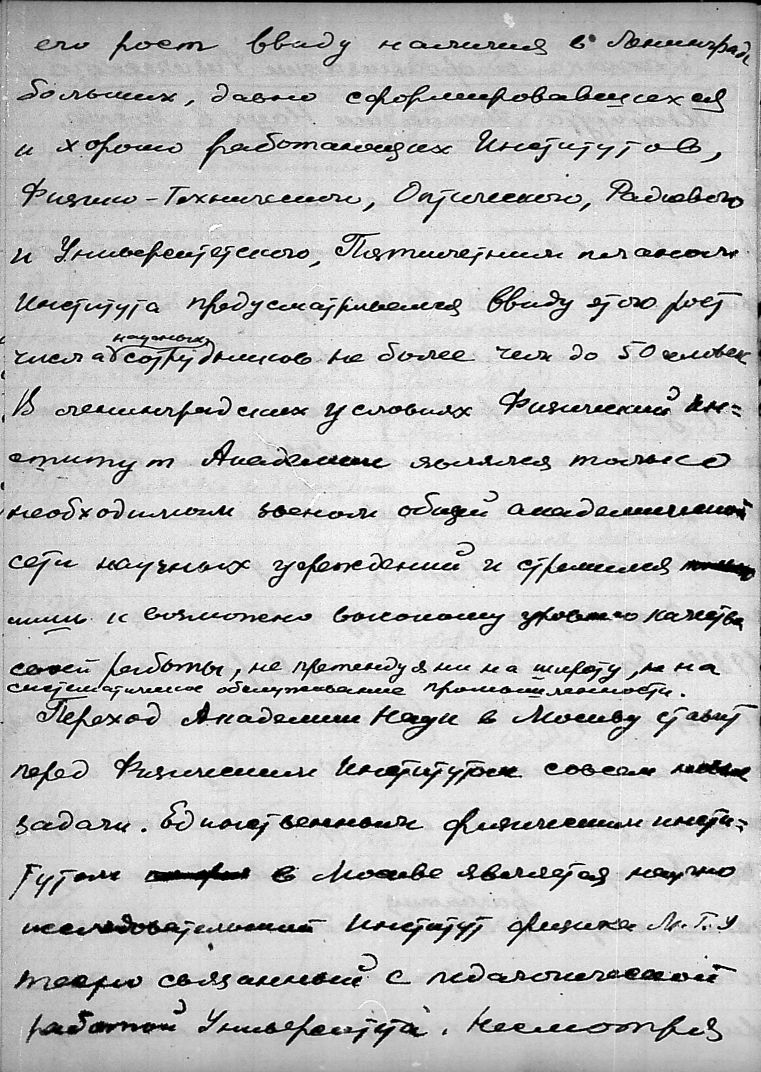 его рост ввиду наличия в Ленинграде
больших, давно сформировавшихся
и хорошо работающих Институтов,
Физико-Технического, Оптического, Радиевого
и Университетского, Пятилетним планом
Института предусматривался ввиду этого рост
числа научных сотрудников не более чем до 50 человек
В ленинградских условиях Физический Ин=
ститут Академии являлся только
необходимым звеном общей академической
сети научных учреждений и стремился
лишь к возможно высокому уровню качества
своей работы, не претендуя ни на широту, ни на
систематическое обслуживание промышленности.
Переход Академии Наук в Москву ставит
перед Физическим Институтом совсем новые
задачи. Единственным физическим инсти=
тутом в Москве является научно
исследовательский Институт физики М.Г.У
тесно связанный с педагогической
работой Университета. Несмотря